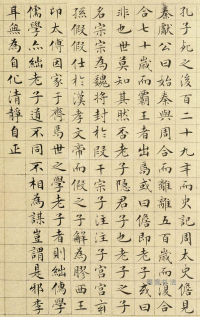 孔子死之後百二十九年而史記周太史儋見
秦獻公曰始秦與周合而離離五百歲而復合
合七十歲而霸王者出焉或曰儋即老子或曰
非也世莫知其然否老子隱君子也老子之子
名宗宗為魏將封於段干宗子注注子宮宮玄
孫假假仕於漢孝文帝而假之子解為膠西王
卬太傅因家于齊焉世之學老子者則絀儒學
儒學亦絀老子道不同不相為謀豈謂是邪李
耳無為自化清靜自正